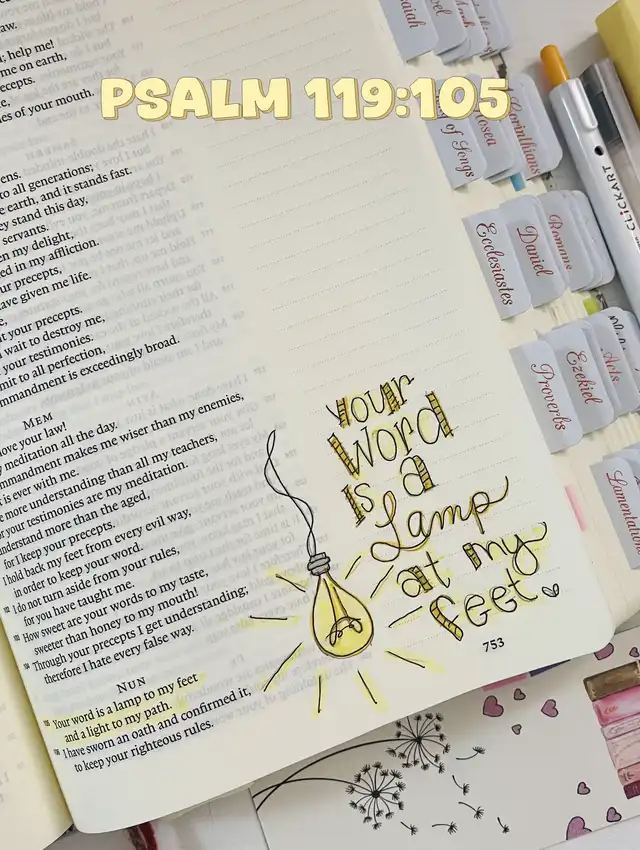 PSALM 119:105
aw.
; help me!
me on earth,
recepts.
es of your mouth.
ens.
to all generations;
e earth, and it stands fast.
ey stand this day,
servants.
en my delight,
ed in my affliction.
ur precepts,
ave given me life.
t your precepts.
wait to destroy me,
your testimonies.
mit to all perfection,
mmandment is exceedingly broad.
MEM
love your law!
y meditation all the day.
mmandment makes me wiser than my enemies,
t is ever with me.
e more understanding than all my teachers,
your testimonies are my meditation.
nderstand more than the aged,
for I keep your precepts.
I hold back my feet from every evil way,
in order to keep your word.
I do not turn aside from your rules,
for you have taught me.
How sweet are your words to my taste,
sweeter than honey to my mouth!
Through your precepts I get understanding;
therefore I hate every false way.
NUN
105 Your word is a lamp to my feet
and a light to my path.
106 I have sworn an oath and confirmed it,
to keep your righteous rules.
your
Word
is a
Lamp
at my
feet
753
of Songs
Hosea
Corinthians
Ecclesiastes
Daniel
Romans
Proverbs
Ezekiel
Acts
Lamentation
CLICKART